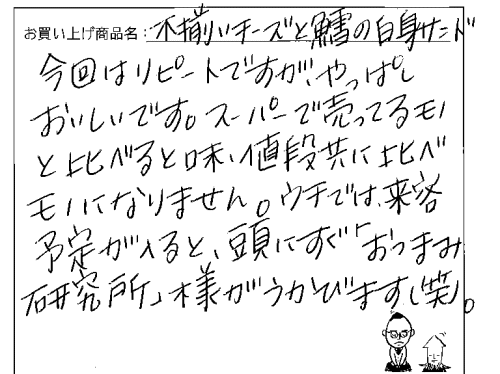 お買い上げ商品名：不揃いチーズと鱈の白身サンド
今回はリピートですが、やっぱし
おいしいです。スーパーで売ってるモノ
と比べると味、値段共に比べ
モノになりません。ウチでは、来客
予定が入ると、頭にすぐ「おつまみ
研究所」様がうかびます（笑）。